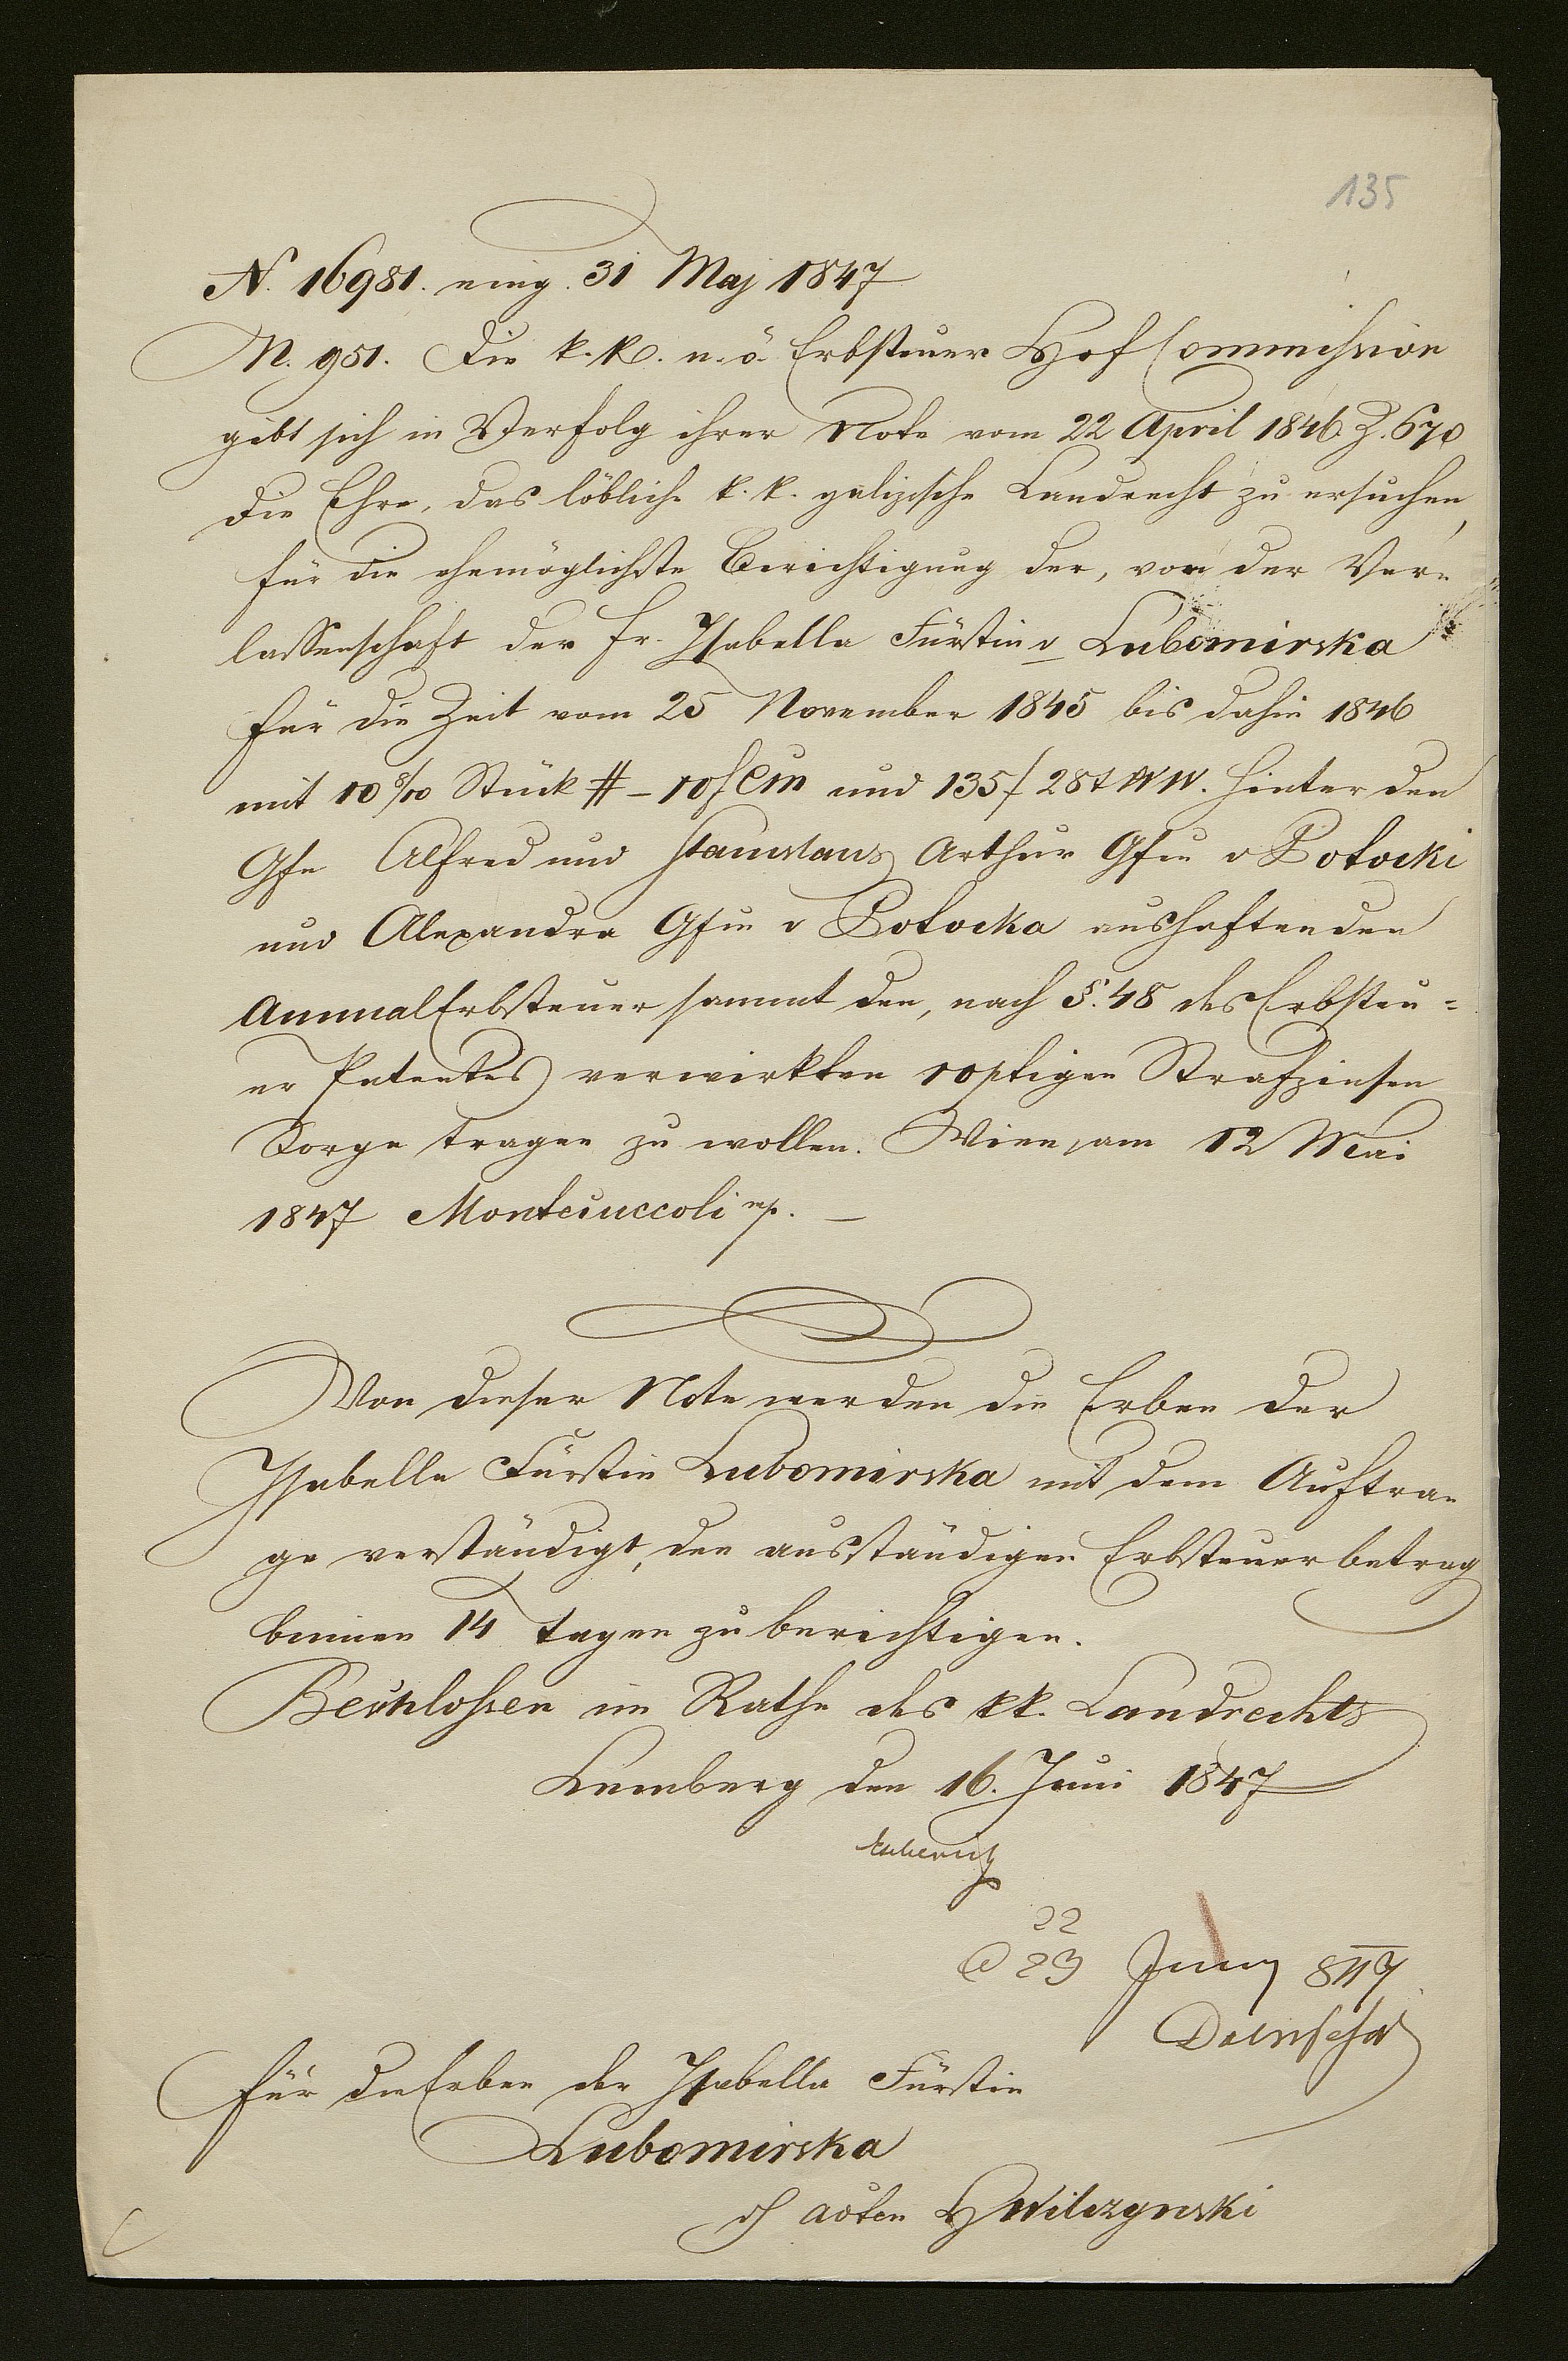 135
N. 16981. eing. 31 Maj 1847
N. 951. Die k.k. n. ö. Erbsteuer Hof Commission
gibt sich in Verfolg ihrer Note vom 22 April 1846 Z. 670
die Ehre, das löbliche k. k. galizische Landrecht zu ersuchen,
für die ehemöglichste Berichtigung der, von der Ver=
lassenschaft der Fr. Isabella Fürstin v Lubomirska
für die Zeit vom 25 November 1845 bis dahin 1846
mit 10 8/10 Stück # – 10 f Cm und 135 f 28 x WW. hinter den
Gfn Alfred und Stanislaus Arthur Gfin v Potocki
und Alexandra Gfin v Potocka aushaftenden
Annual Erbsteuer sammt den, nach §. 48 des Erbsteu=
er Patentes verwirkten 10 ptigen Strafzinsen
Sorge tragen zu wollen. Wien, am 12 Mai
1847 Montecuccoli mp. —
Von dieser Note werden die Erben der
Isabella Fürstin Lubomirska mit dem Auftra=
ge verständigt, den ausständigen Erbsteuerbetrag
binnen 14 Tagen zu berichtigen.
Beschlossen im Rathe des kk. Landrechts
Lemberg den 16. Juni 1847
22
23 Juny 847
Für die Erben der Isabella Fürstin
Lubomirska
Adten H Wilczynski